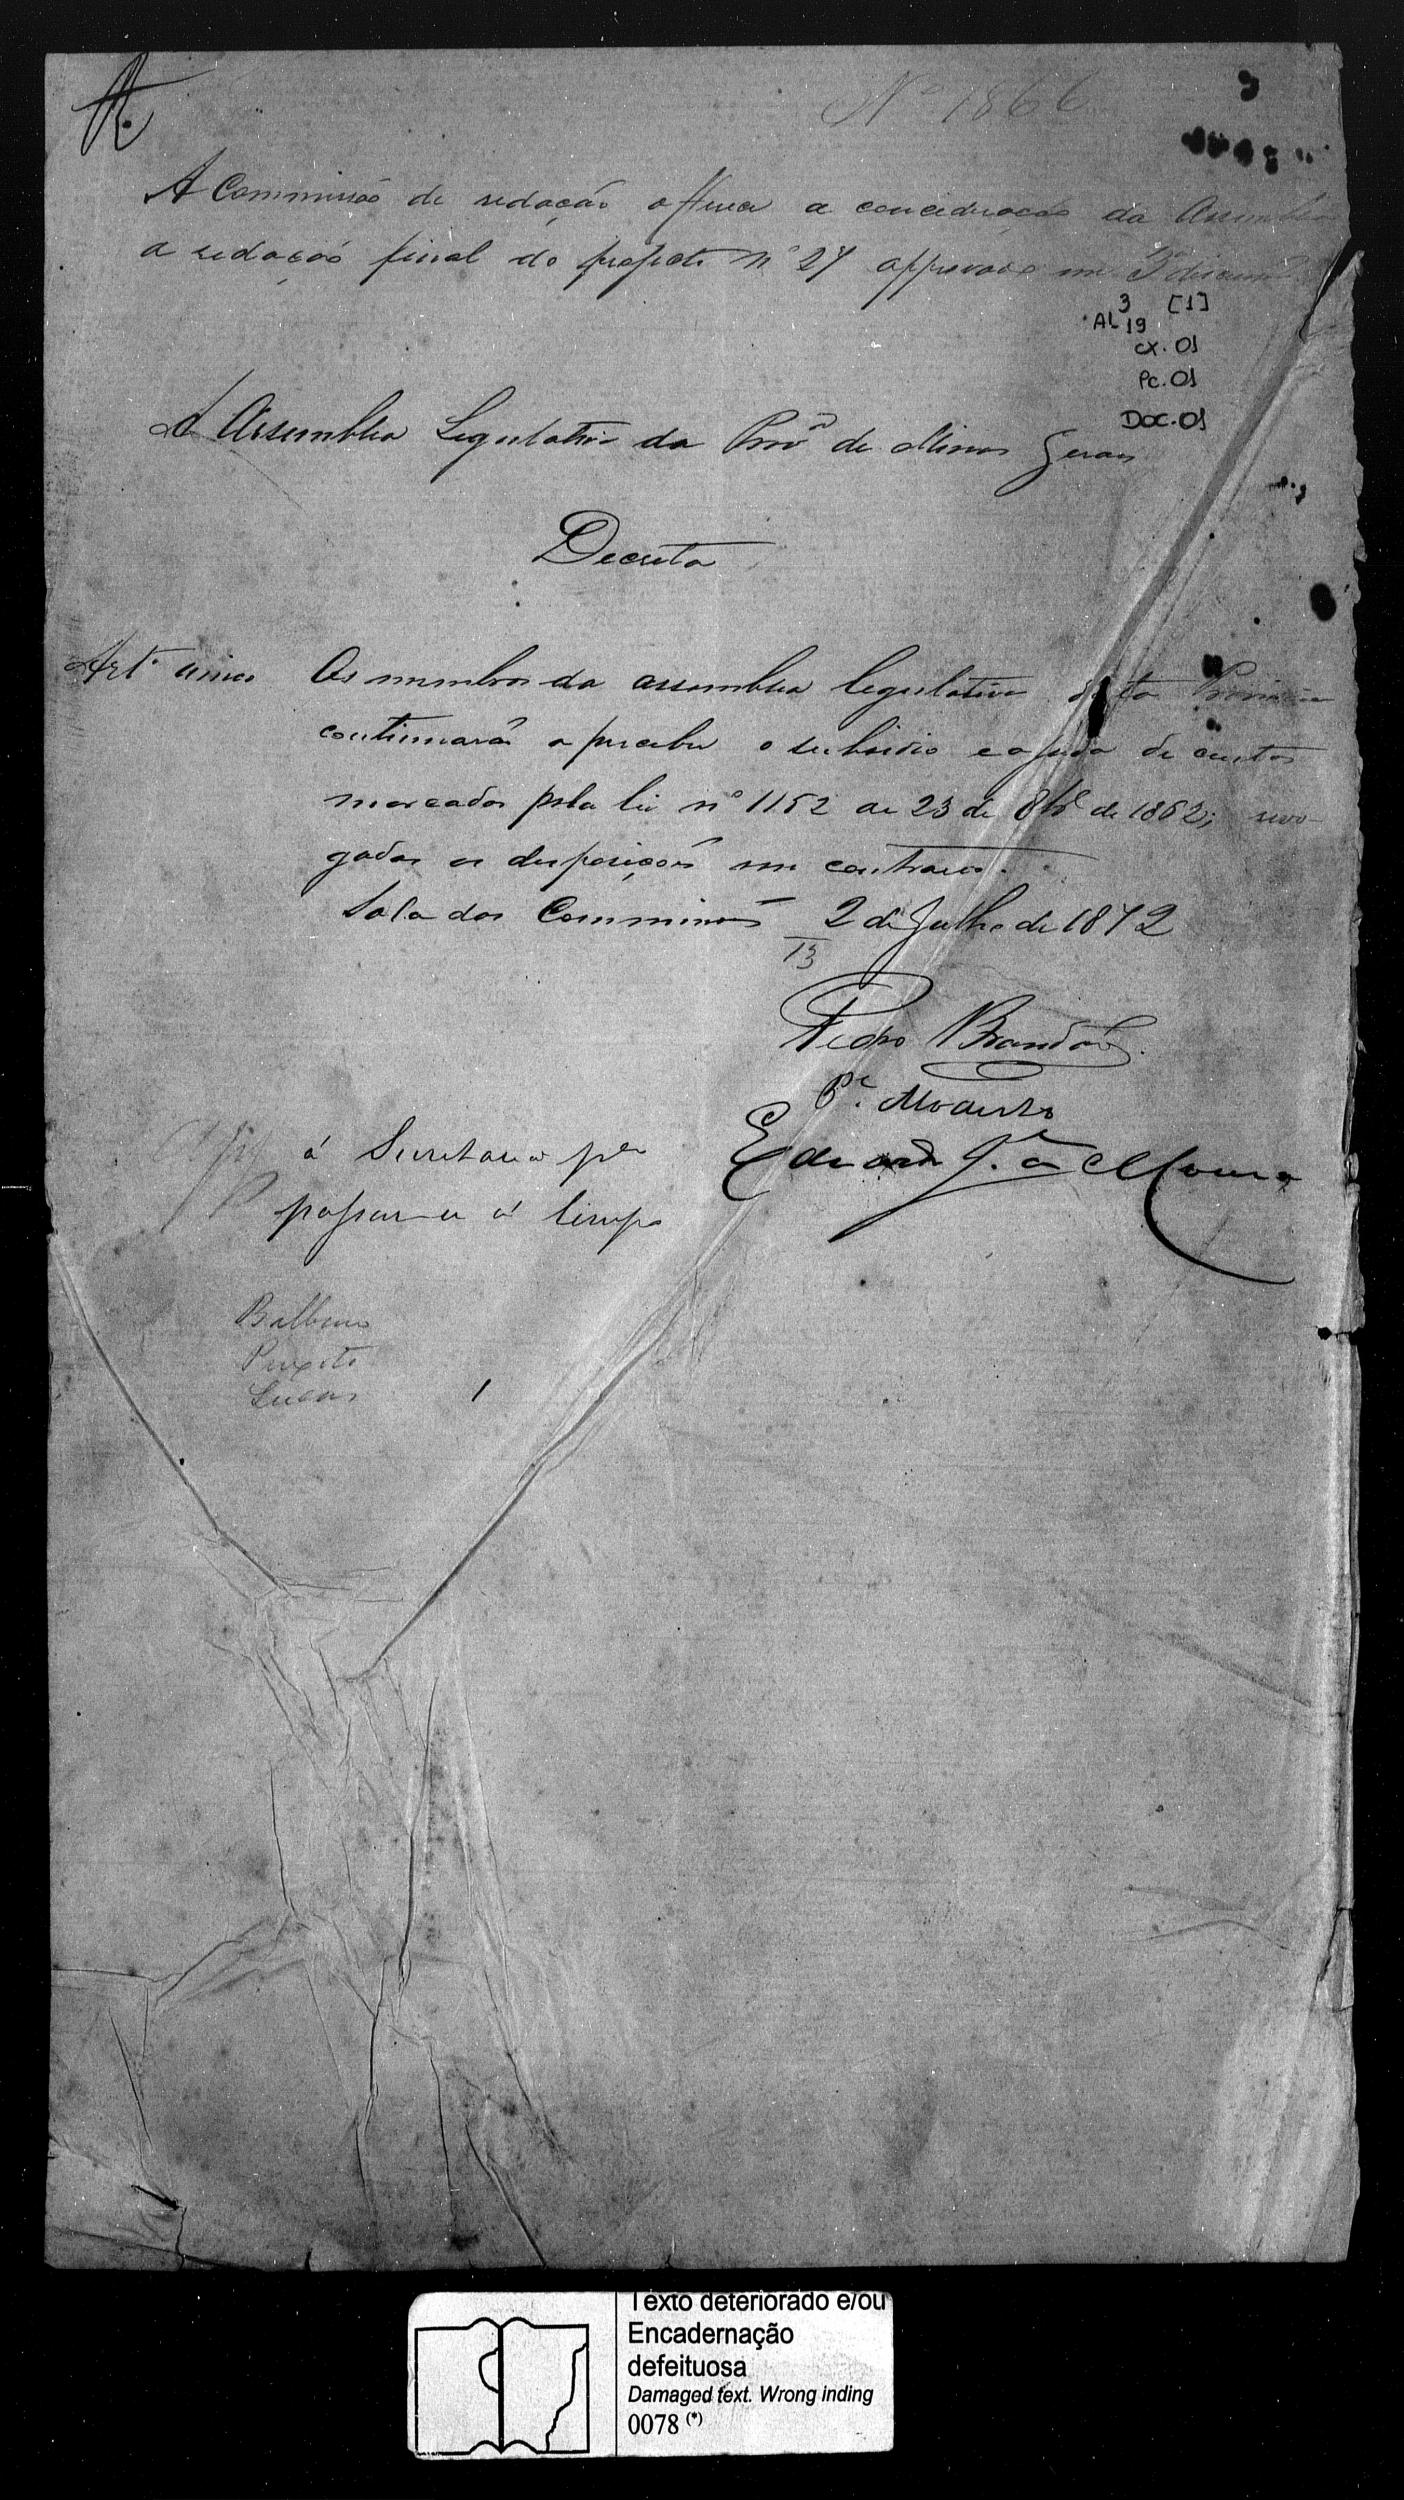 Nº 1866
A Commissão de redação offerece a concideração da Assemblea
a redação final do projecto nº 27 approvado em 3ª discussão
3 [1]
AL 19
CX. 01
PC. 01
DOC. 01
A Assemblea Legislativa da Provª de Minas Geraes
Decreta
Artº unico Os membros da assemblea legislativa desta Provincia
continuarão a perceber o subsidio e ajuda de custos
marcados pela lei nº 1152 de 23 de 8bro de 1862; revo-
gadas as disposições em contrario.
Sala das Commissões 2 de Julho de 1872
13
Pedro Brandão
Pe. Modesto
á Secretaria pra
Eduardo J. de Moura
passar-se a limpo
Balbino
Peixoto
Lucas
Texto deteriorado e/ou
Encadernação
defeituosa
Damaged text. Wrong inding
0078 (*)